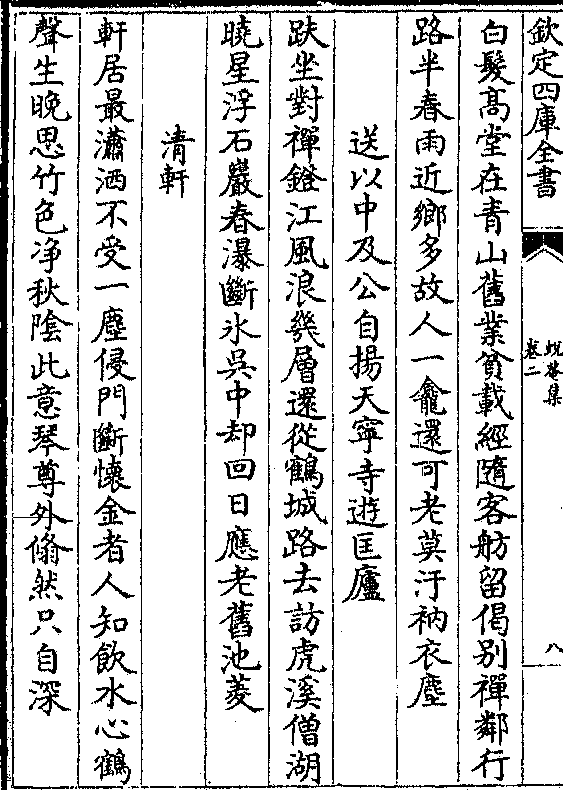 欽定四庫全書
蛻菴集
卷二
八
白髮高堂在青山舊業貧載經隨客舫留偈别禪鄰行
路半春雨近鄉多故人一龕還可老莫汙衲衣塵
送以中及公自揚天寧寺遊匡廬
趺坐對禪鐙江風浪幾層還從鶴城路去訪虎溪僧湖
曉星浮石巖春瀑斷氷吳中却回日應老舊池菱
清軒
軒居最瀟洒不受一塵侵門斷懷金者人知飲水心鶴
聲生晚思竹色净秋陰此意琴尊外翛然只自深